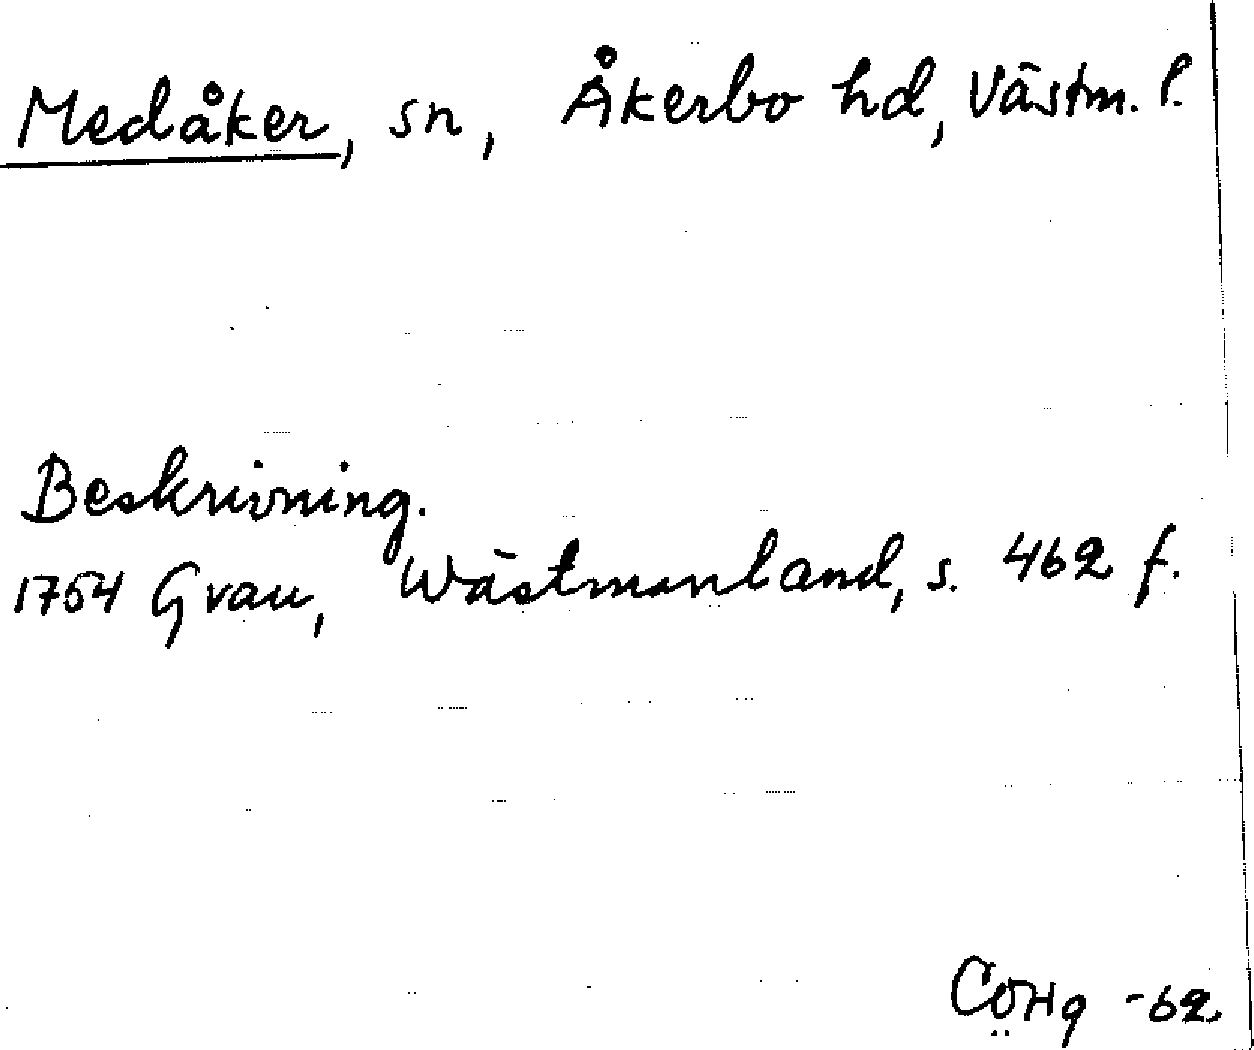 Medåker, sn, Åkerbo hd, Västm. l.
Beskrivning.
1754 Grau, Wästmanland, s. 462 f.
CÖHg -62